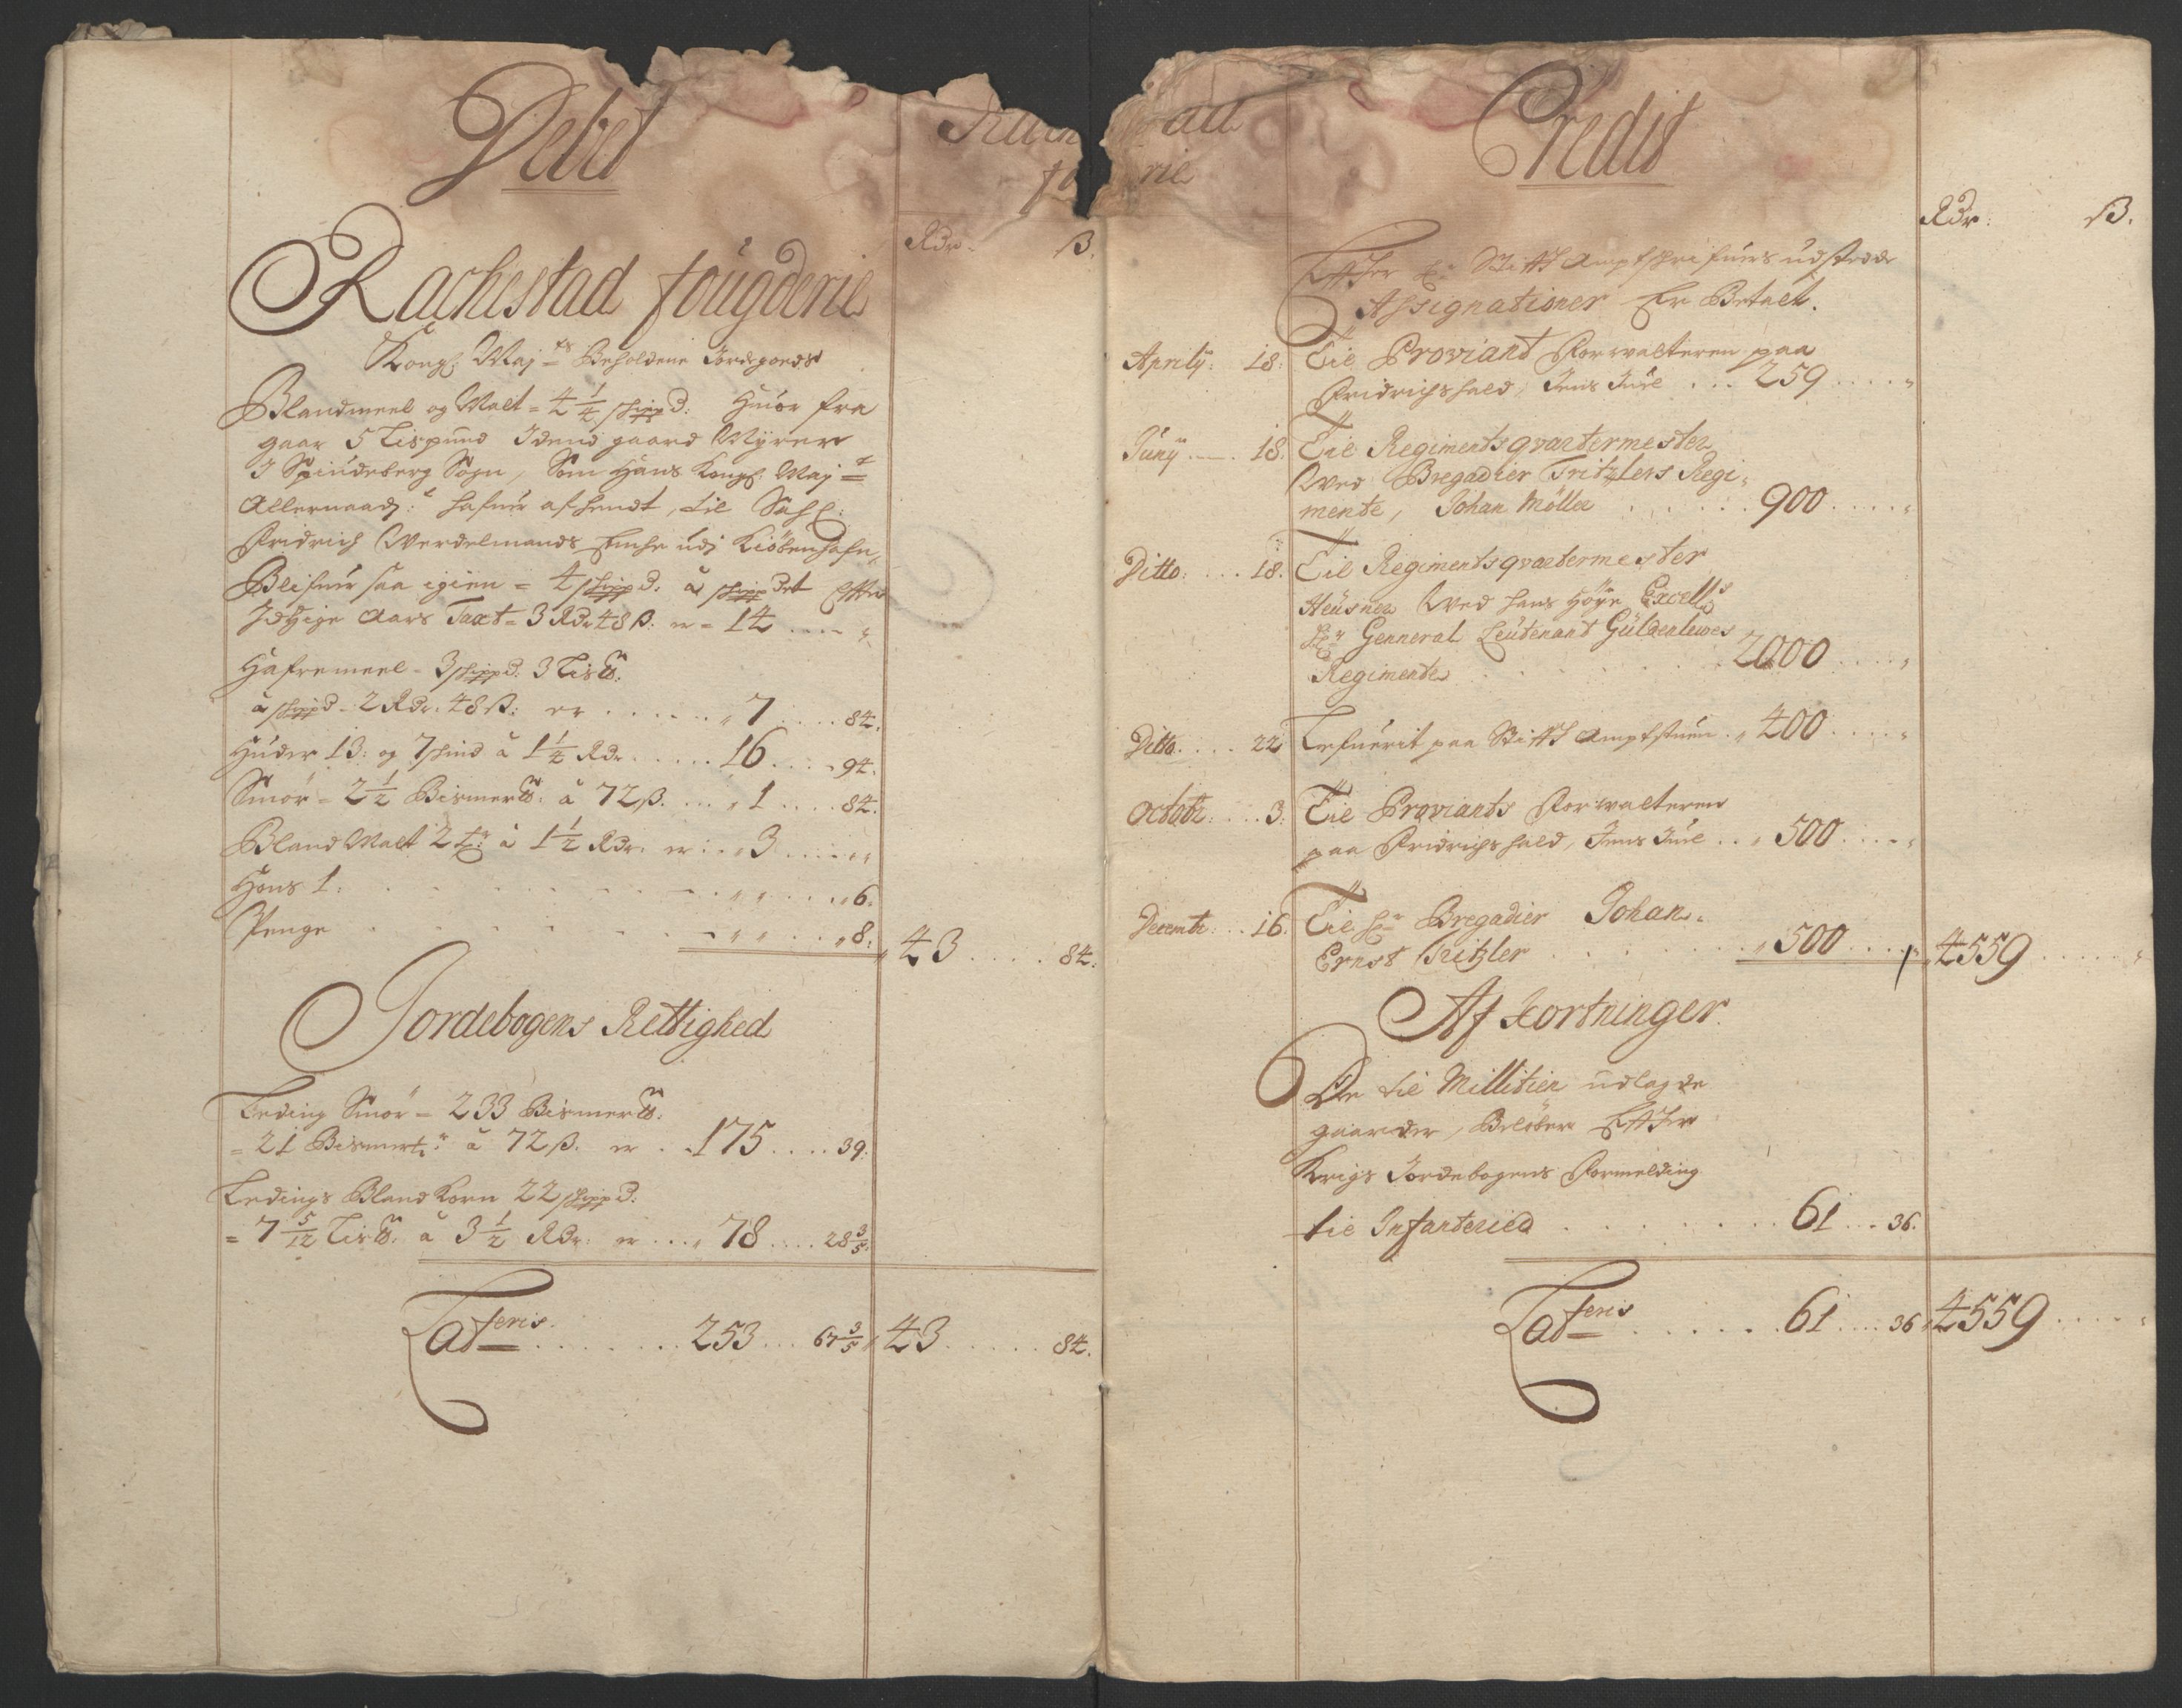 Debet
Rdr. ß.
Rachestad fougderie
Kongl. Maj.ts Beholdene Jordegoeds
Blandmeel og Malt = 4 1/4 schippd: Huor fra
gaar 5 Lispund Idend gaard Myrer
I Spindeberg Sogn, Som Hans Kongl. Maj.t
Allernaadj.t hafuer afhendt, til Sahl:
Fridrich Werdelmands udj Kiöbenhafn,
Blifuer saa igien = 4 schippd. à schippdet Effter
Idtzige Aars Taxt = 3 Rdr 48 ß. er = 14 .... "
Hafremeel = 3 schippd. 3 Lis℔.
à schippd = 2 Rdr. 48 ß: er ...... " 7 .... 84.
Huder 13: og 7 skind à 1 1/4 Rdr ...... 16 .... 94.
Smör = 2 1/2 Bismer℔. à 72 ß. ... " 1 .... 84.
Bland Malt 2 tr: à 1 1/2 Rdr. er .. " 3 ......
Höns 1. . . . . . . " " .... " 6.
Penge . . . . . . . " " .... " 8. " 43 .... 84.
Jordebogens Rettighed
Leding Smör = 233 Bismer℔.
= 21 Bismerk.r à 72 ß. er .. 175 .... 39.
Ledings Bland Korn 22 schippd.
= 7 5/12 Lis℔. à 3 1/2 Rdr. er .... " 78 .... 28 3/5.
Lateris ........ 253 ... 67 3/5 " 43 ..... 84.
Credit
Rdr: ß.
Effter Hr Stifft Amptschrifuers udstedde
Assignationer Er Betalt.
Aprily: 18: Til Proviant Forvalteren paa
Fridrichshald, Jens Juel ... 259 .... "
Juny ... 18. Til Regimentsqvartermester
Wed Bregadier Tritzlers Regi-
mente, Johan Möller ...... 900 .... "
Ditto: ... 18. Til Regimentsqvartermester
Heusner Wed hans Höye Excell.s
Hr Genneral Leutenant Güldenlewes
Regimente ........ 2000 .... "
Ditto .... 22 Lefuerit paa Stifft Amptstuen . " 400 .... "
Octobr: ... 3: Til Proviants Forvalteren
paa Fridrichshald, Jens Juel .. " 500 .... "
Decembr: .. 16. Til Hr Bregadier Johan
Ernst Tritzler ....... " 500 .... " 4559 .....
Af Kortninger
De til Millitien udlagde
gaarder, Beløber Effter
Krigs Jordebogens Formelding
til Infanteried ........ 61 ... 36.
Lateris ....... 61 .... 36 " 4559 ....